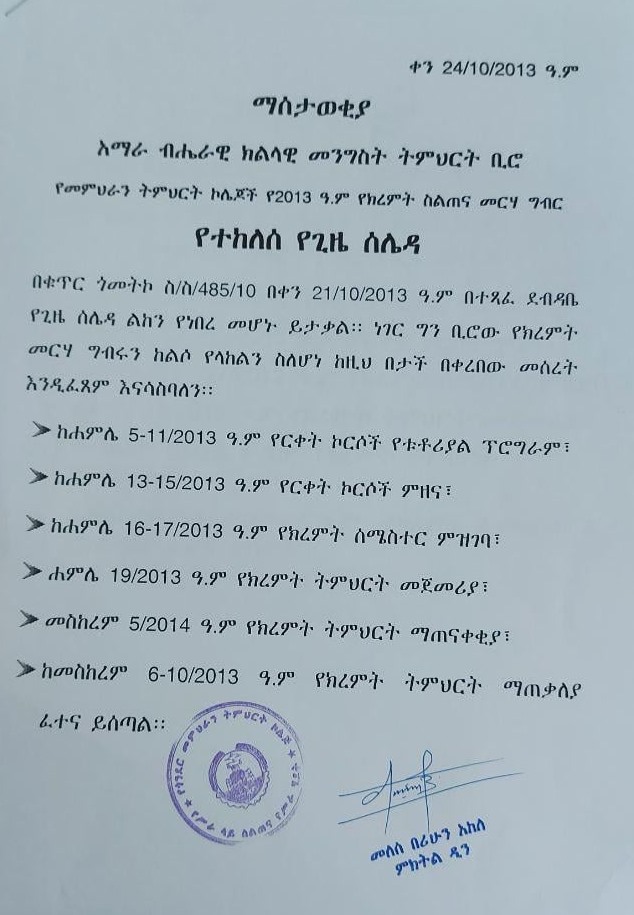 ቀን 24/10/2013 ዓ.ም
ማስታወቂያ
አማራ ብሔራዊ ክልላዊ መንግስት ትምህርት ቢሮ
የመምህራን ትምህርት ኮሌጆች የ2013 ዓ.ም የክረምት ስልጠና መርሃ ግብር
የተከለሰ የጊዜ ሰሌዳ
በቁጥር ጎመትኮ ስ/ስ/485/10 በቀን 21/10/2013 ዓ.ም በተጻፈ ደብዳቤ
የጊዜ ሰሌዳ ልከን የነበረ መሆኑ ይታቃል። ነገር ግን ቢሮው የክረምት
መርሃ ግብሩን ከልሶ የላከልን ስለሆነ ከዚህ በታች በቀረበው መሰረት
እንዲፈጸም እናሳስባለን።
➢ ከሐምሌ 5-11/2013 ዓ.ም የርቀት ኮርሶች የቱቶሪያል ፕሮግራም፣
➢ ከሐምሌ 13-15/2013 ዓ.ም የርቀት ኮርሶች ምዘና፣
➢ ከሐምሌ 16-17/2013 ዓ.ም የክረምት ሰሜስተር ምዝገባ፣
➢ ሐምሌ 19/2013 ዓ.ም የክረምት ትምህርት መጀመሪያ፣
➢ መስከረም 5/2014 ዓ.ም የክረምት ትምህርት ማጠናቀቂያ፣
➢ ከመስከረም 6-10/2013 ዓ.ም የክረምት ትምህርት ማጠቃለያ
ፈተና ይሰጣል።
መምህራን ትምህርት ኮሌጅ
መለስ በሪሁን አከለ
ምክትል ዲን